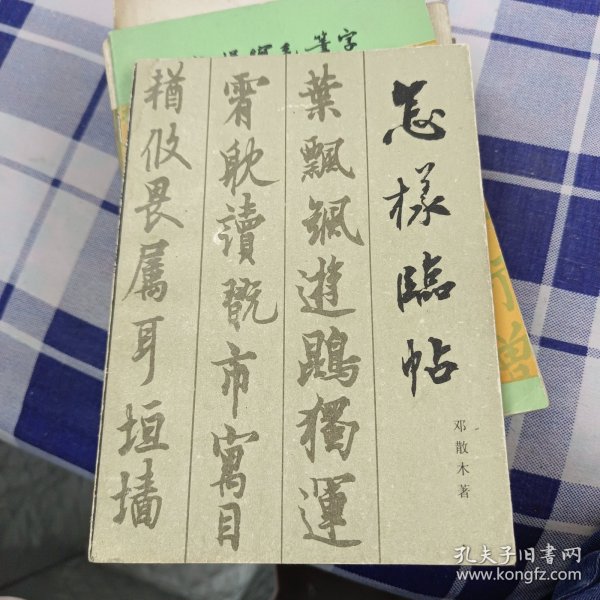 怎樣臨帖
邓散木著
葉飄飖遊鵾獨運
霄耽讀翫市寓目
輶攸畏属耳垣墙
孔夫子旧书网
www.kongfz.com